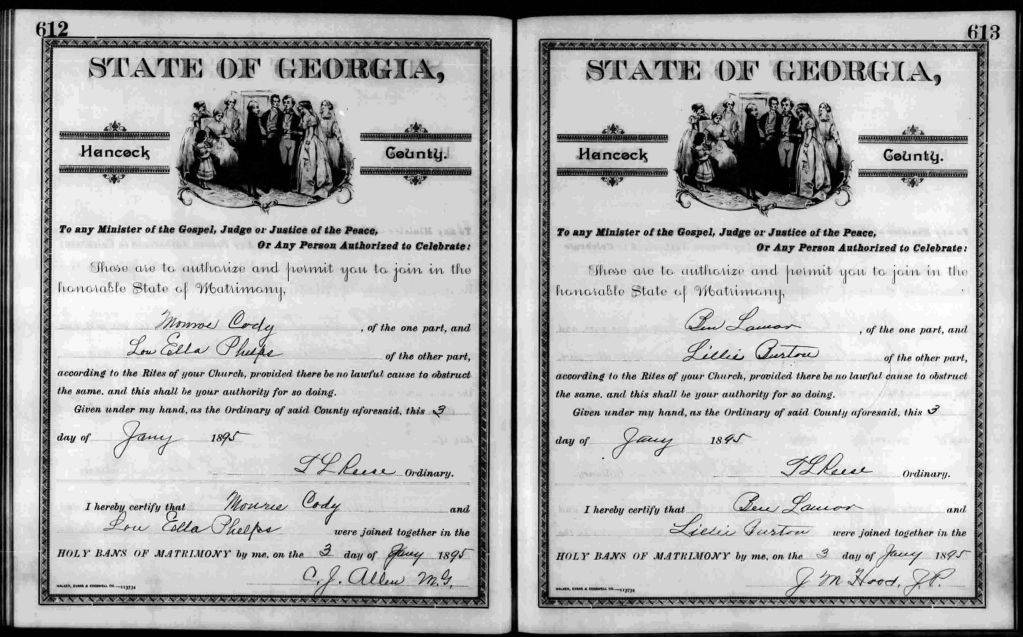 612
STATE OF GEORGIA,
Hancock County.
To any Minister of the Gospel, Judge or Justice of the Peace,
Or Any Person Authorized to Celebrate:
These are to authorize and permit you to join in the
honorable State of Matrimony,
Monroe Cody, of the one part, and
Lou Ella Phelps of the other part,
according to the Rites of your Church, provided there be no lawful cause to obstruct
the same, and this shall be your authority for so doing.
Given under my hand, as the Ordinary of said County aforesaid, this 3
day of Jany 1895
T L Reese Ordinary.
I hereby certify that Monroe Cody and
Lou Ella Phelps were joined together in the
HOLY BANS OF MATRIMONY by me, on the 3 day of Jany 1895
C. J. Allen M.G.
WALKER, EVANS & COGSWELL CO.—113734
613
STATE OF GEORGIA,
Hancock County.
To any Minister of the Gospel, Judge or Justice of the Peace,
Or Any Person Authorized to Celebrate:
These are to authorize and permit you to join in the
honorable State of Matrimony,
Ben Lamar, of the one part, and
Lillie Burton of the other part,
according to the Rites of your Church, provided there be no lawful cause to obstruct
the same, and this shall be your authority for so doing.
Given under my hand, as the Ordinary of said County aforesaid, this 3
day of Jany 1895
T L Reese Ordinary.
I hereby certify that Ben Lamar and
Lillie Burton were joined together in the
HOLY BANS OF MATRIMONY by me, on the 3 day of Jany 1895
J M Hood, J.P.
WALKER, EVANS & COGSWELL CO.—113734